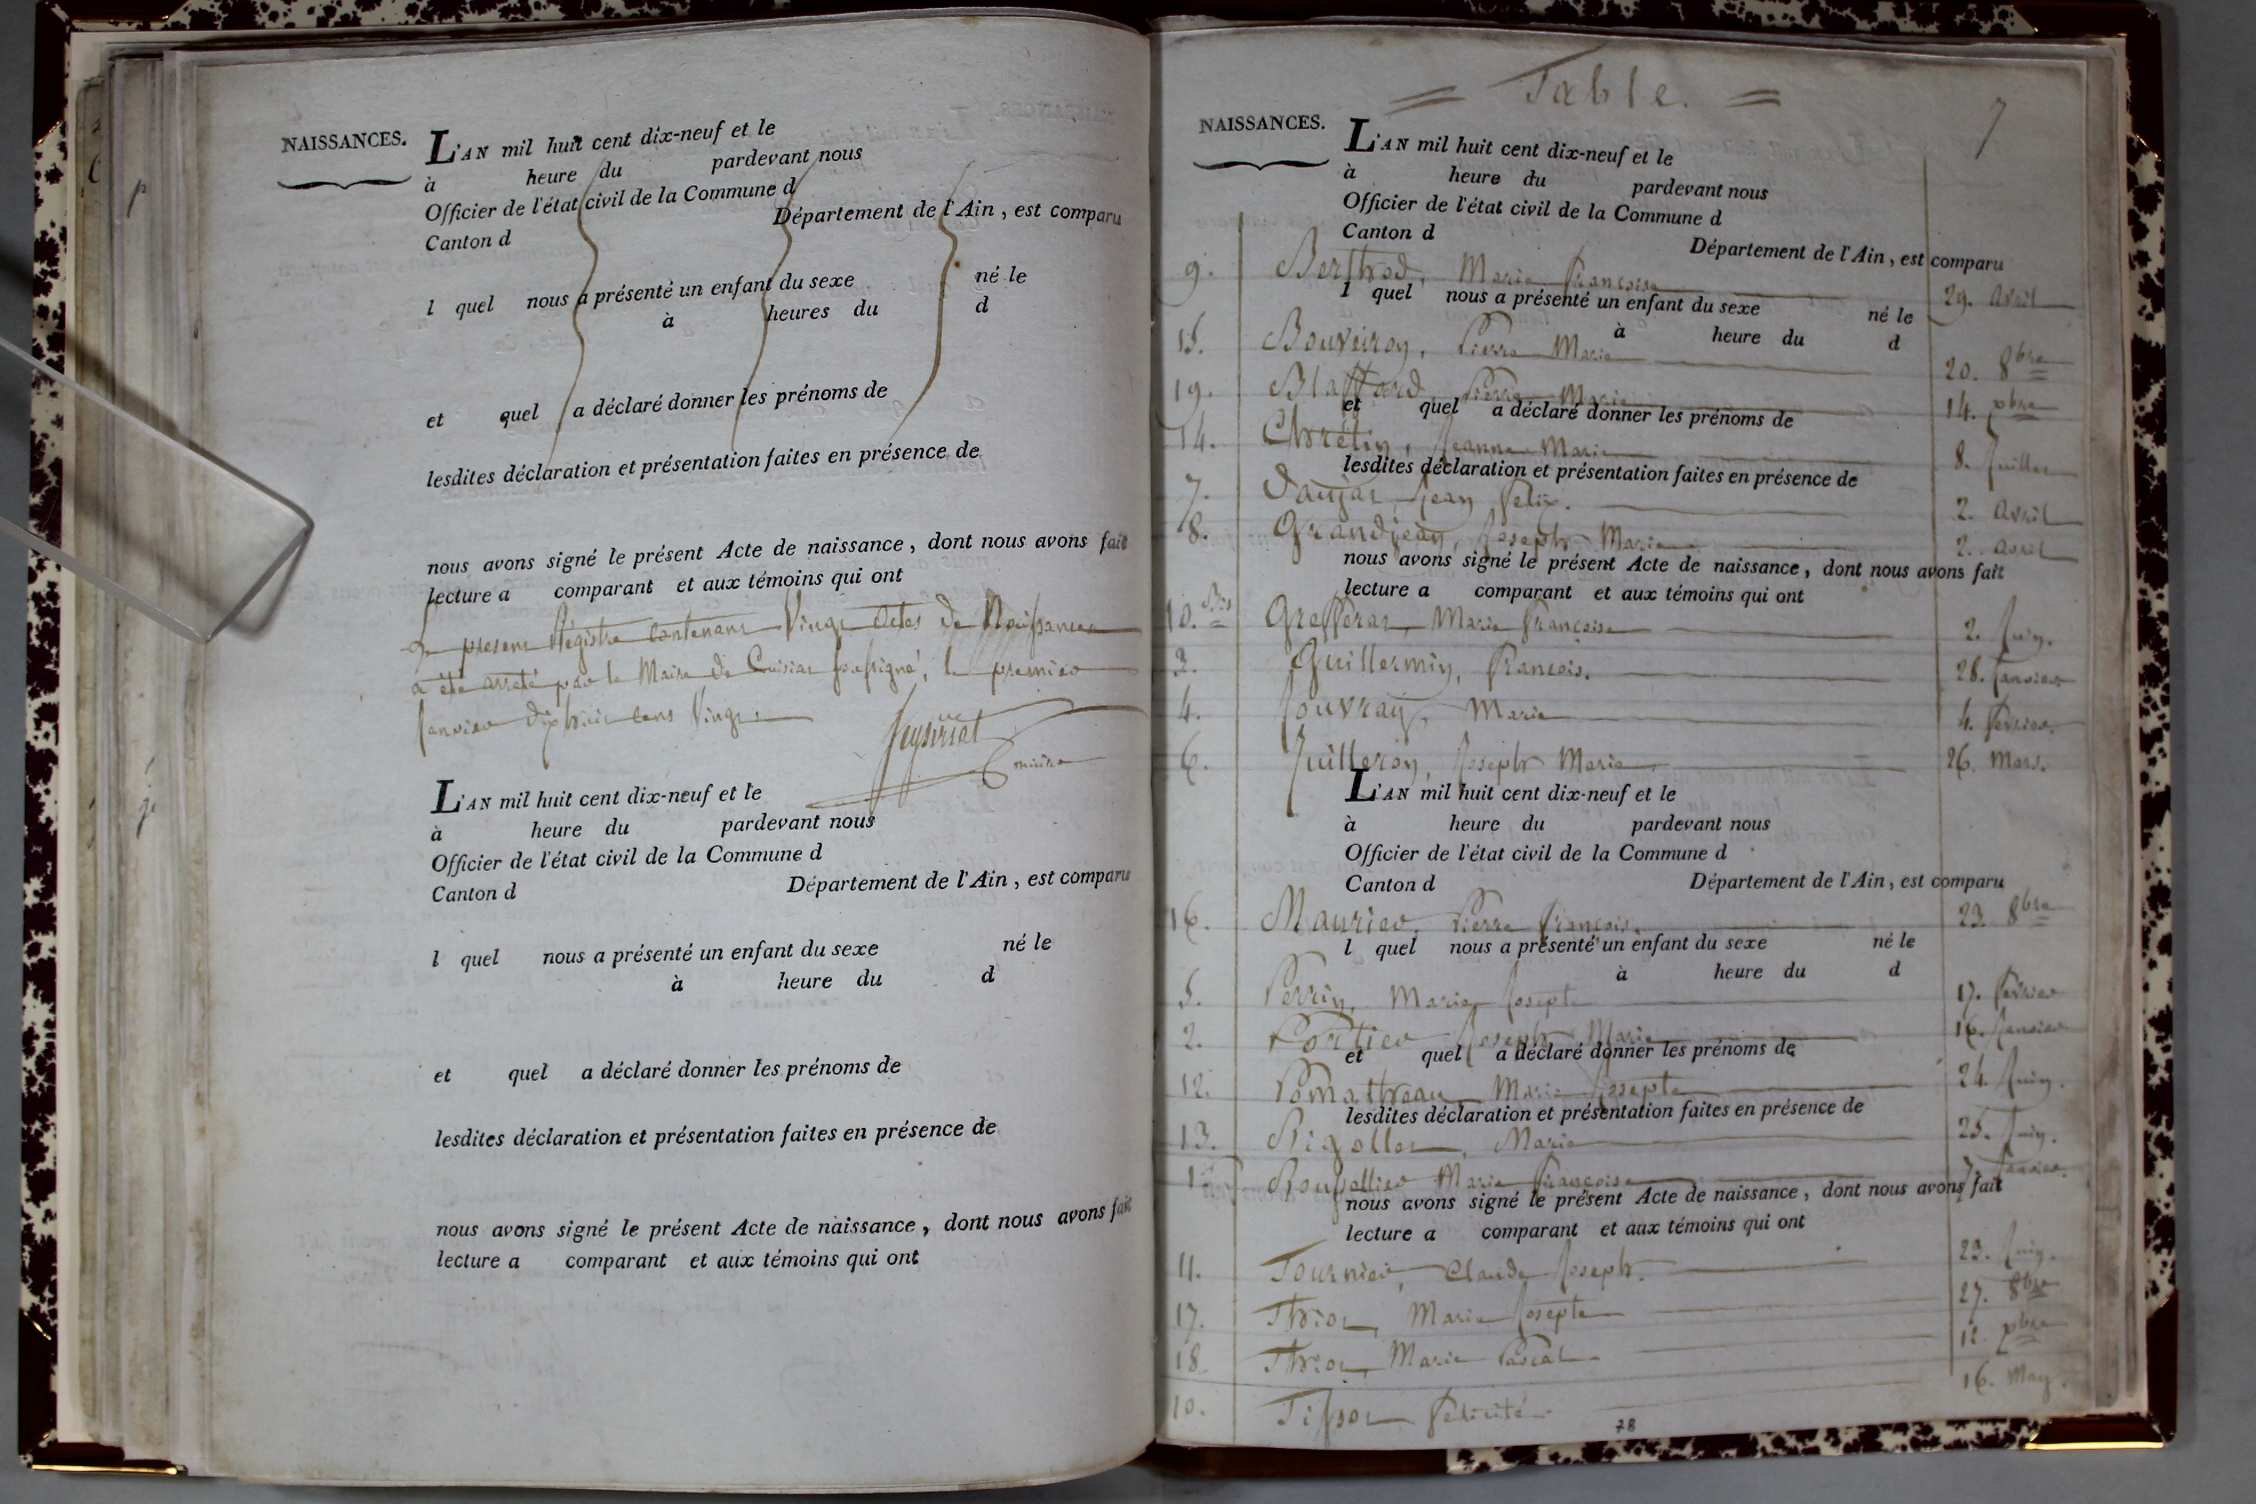 NAISSANCES.
L'AN mil huit cent dix-neuf et le
à heure du pardevant nous
Officier de l'état civil de la Commune d
Canton d Département de l'Ain, est comparu
l quel nous a présenté un enfant du sexe né le
à heures du d
et quel a déclaré donner les prénoms de
lesdites déclaration et présentation faites en présence de
nous avons signé le présent Acte de naissance, dont nous avons fait
lecture a comparant et aux témoins qui ont
Le present Régistre Contenant Vingt Actes de Naissances
a été arreté par le Maire de Cuisiat soussigné, le premier
Janvier dixhuit cent Vingt.
maire
L'AN mil huit cent dix-neuf et le
à heure du pardevant nous
Officier de l'état civil de la Commune d
Canton d Département de l'Ain, est comparu
l quel nous a présenté un enfant du sexe né le
à heure du d
et quel a déclaré donner les prénoms de
lesdites déclaration et présentation faites en présence de
nous avons signé le présent Acte de naissance, dont nous avons fait
lecture a comparant et aux témoins qui ont
= Table. =
7
NAISSANCES.
L'AN mil huit cent dix-neuf et le
à heure du pardevant nous
Officier de l'état civil de la Commune d
Canton d Département de l'Ain, est comparu
9. Berthod, Marie Françoise 29. avril
l quel nous a présenté un enfant du sexe né le
à heure du d
15. Bouveiron, Pierre Marie 20. 8bre
19. Blaffard, Pierre Marie 14. xbre
et quel a déclaré donner les prénoms de
14. Chrétin, Jeanne Marie 8. Juillet
lesdites déclaration et présentation faites en présence de
7. Daujat, Jean Felix. 2. avril
8. Grandjean, Joseph Marie 2. avril
nous avons signé le présent Acte de naissance, dont nous avons fait
lecture a comparant et aux témoins qui ont
10. Bis Grefferat, Marie Françoise 2. Juin.
3. Guillermin, François. 28. Janvier
4. Jouvray, Marie 4. Fevrier.
6. Juilleron, Joseph Marie 26. Mars.
L'AN mil huit cent dix-neuf et le
à heure du pardevant nous
Officier de l'état civil de la Commune d
Canton d Département de l'Ain, est comparu
16. Maurier, Pierre François. 23. 8bre
l quel nous a présenté un enfant du sexe né le
à heure du d
5. Perrin, Marie Josept 17. Fevrier
2. Portier Joseph Marie 16. Janvier
et quel a déclaré donner les prénoms de
12. Pomathreau Marie Josepte 24. Juin.
lesdites déclaration et présentation faites en présence de
13. Rigollet, Marie 25. Juin.
1. Roussellier Marie Françoise 7. Janvier.
nous avons signé le présent Acte de naissance, dont nous avons fait
lecture a comparant et aux témoins qui ont
11. Tournier, Claude Joseph. 23. Juin.
17. Thiot, Marie Josepte 27. 8bre
18. Thiot, Marie Pascal 12. xbre
10. Tissot Félicité 16. May.
78